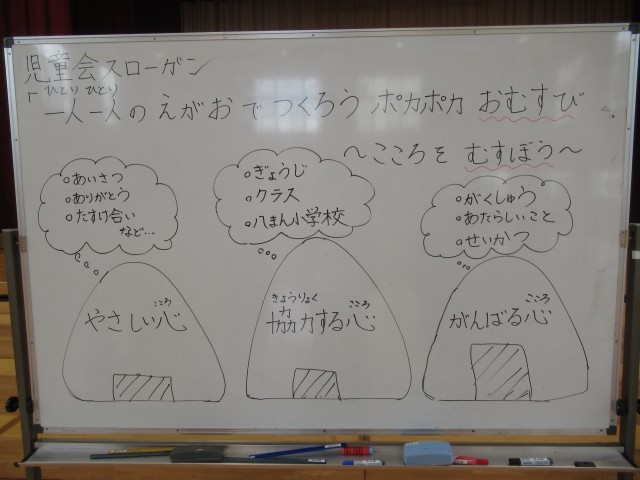 児童会スローガン
ひとり ひとり
「一人一人のえがおでつくろう ポカポカ おむすび
〜こころを むすぼう〜
○あいさつ
○ありがとう
○たすけ合い
など…
○ぎょうじ
○クラス
○八まん小学校
○がくしゅう
○あたらしいこと
○せいかつ
こころ
やさしい心
きょうりょく こころ
協力する心
こころ
がんばる心